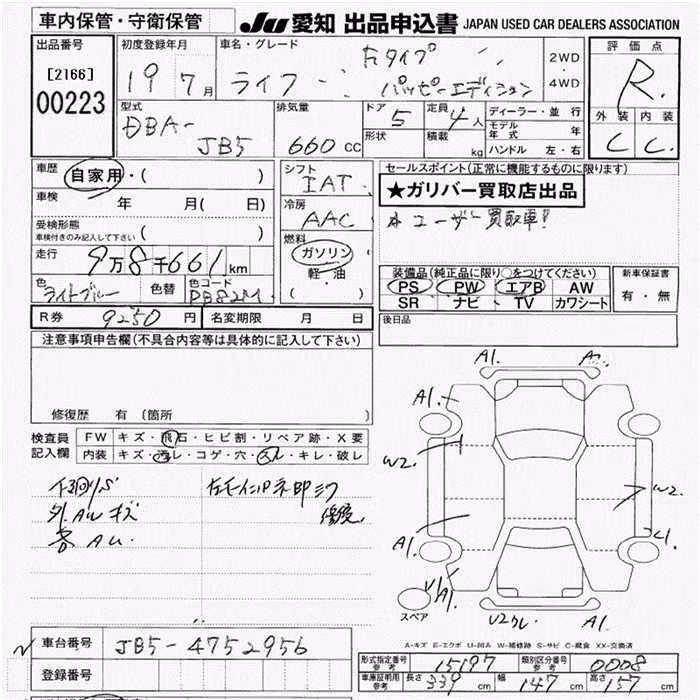 車内保管・守衛保管 Ju 愛知 出品申込書 JAPAN USED CAR DEALERS ASSOCIATION
出品番号 初度登録年月 車名・グレード 評価点
[2166] 19 7月 ライフ Fタイプ ハッピーエディション 2WD・4WD R.
00223
型式 排気量 ドア 定員 ディーラー・並行 外装 内装
DBA-JB5 660 CC 5 4人 モデル年式 年 C C.
形状 積載 kg ハンドル 左・右
車歴 自家用・( ) シフト IAT セールスポイント(正常に機能するものに限ります)
車検 年 月( 日) 冷房 AAC ★ガリバー買取店出品
受検形態 車検付きのみ記入して下さい ( ) 燃料 ガソリン ユーザー買取車!!
走行 9万8千661km 軽・油 ( )
装備品(純正品に限り○をつけてください) 新車保証書
色 ライトブルー 色替 色コード PS PW エアB AW 有・無
SR ナビ TV カワシート
R券 9250円 名変期限 月 日 後日品
注意事項申告欄(不具合内容等は具体的に記入して下さい)
修復歴 有(箇所 )
検査員記入欄 FW キズ・飛石・ヒビ割・リペア跡・X要
内装 キズ・汚レ・コゲ・穴・スレ・キレ・破レ
外AWキズ
A1.
A1.
W2.
W2.
A1.
A1.
A1.
スペア
A-キズ E-エクボ U-凹み W-補修跡 S-サビ C-腐食 XX-交換済
車台番号 JB5-4752956
登録番号
型式指定番号 参考 15197 類別区分番号 参考 0008
車庫証明用 参考 長さ 339 cm 幅 147 cm 高さ 157 cm